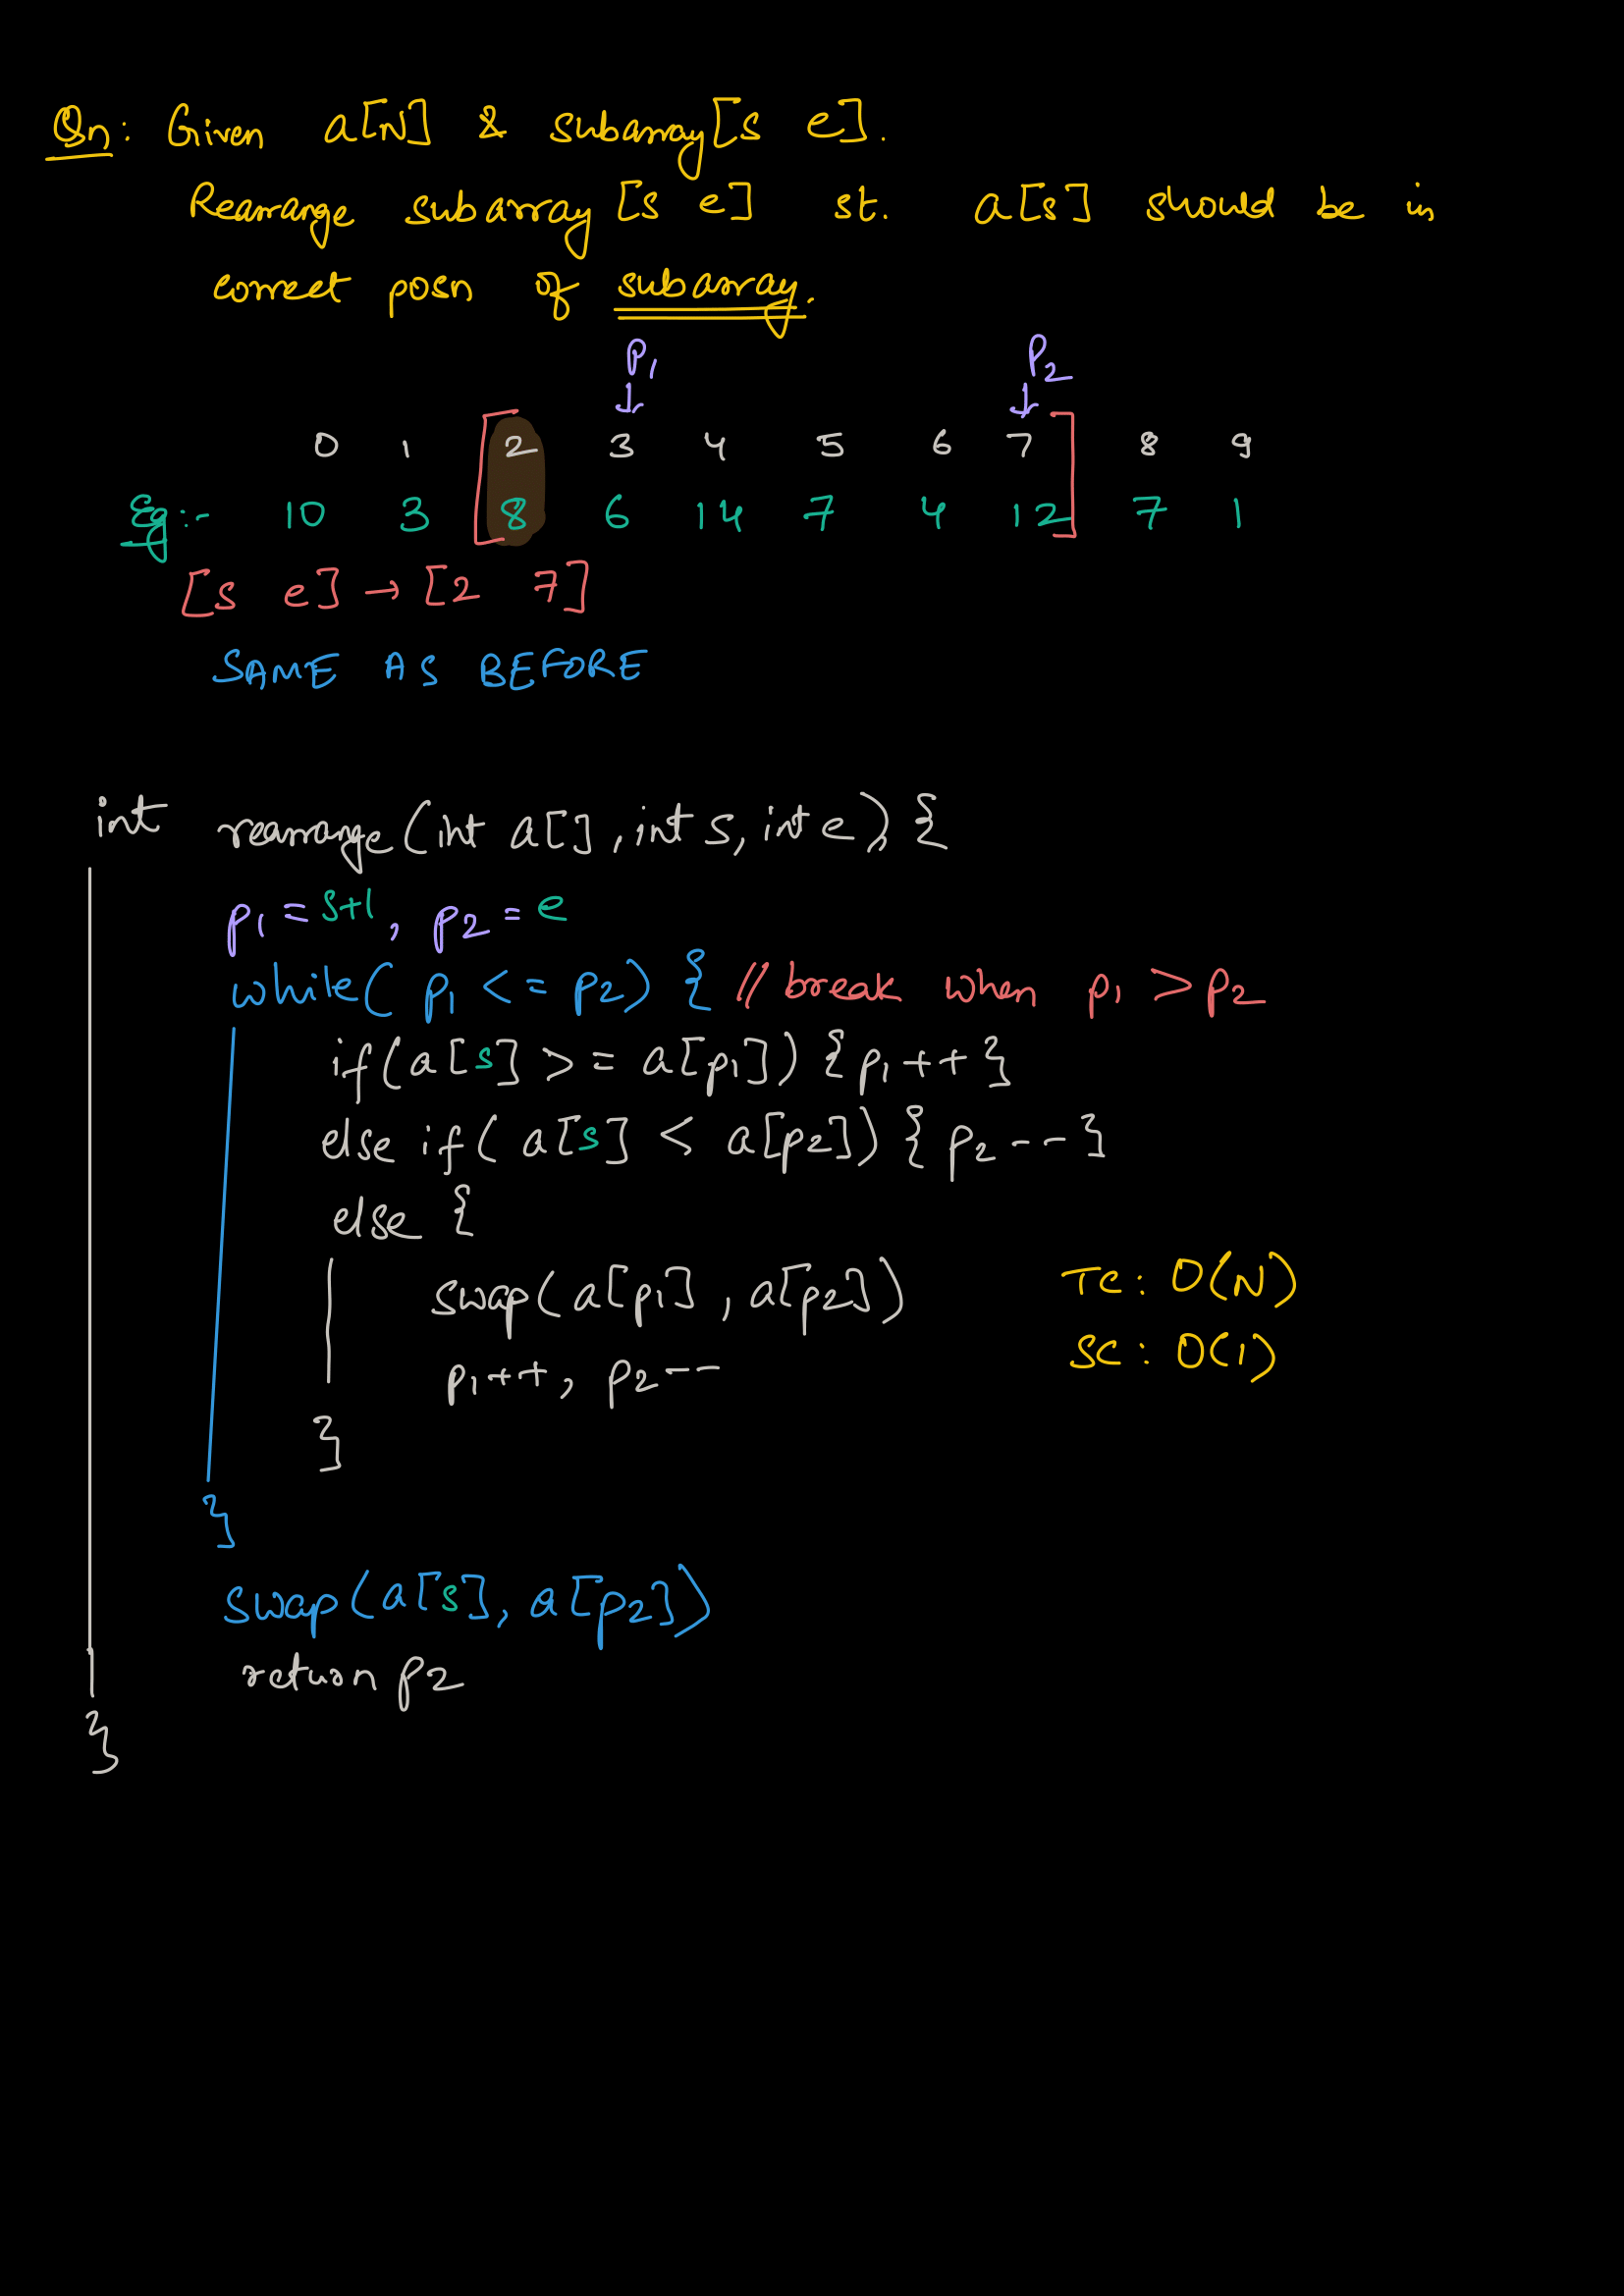 Qn: Given a[N] & subarray[s e].
Rearrange subarray [s e] st. a[s] should be in
correct posn of subarray.
P1 P2
0 1 2 3 4 5 6 7 8 9
Eg:- 10 3 [8 6 14 7 4 12] 7 1
[s e] → [2 7]
SAME AS BEFORE
int rearrange(int a[], int s, int e) {
p1 = s+1, p2 = e
while( p1 <= p2) { // break when p1 > p2
if(a[s] >= a[p1]) {p1++}
else if( a[s] < a[p2]) { p2--}
else {
swap(a[p1], a[p2])
p1++, p2--
}
TC: O(N)
SC: O(1)
}
swap(a[s], a[p2])
return p2
}